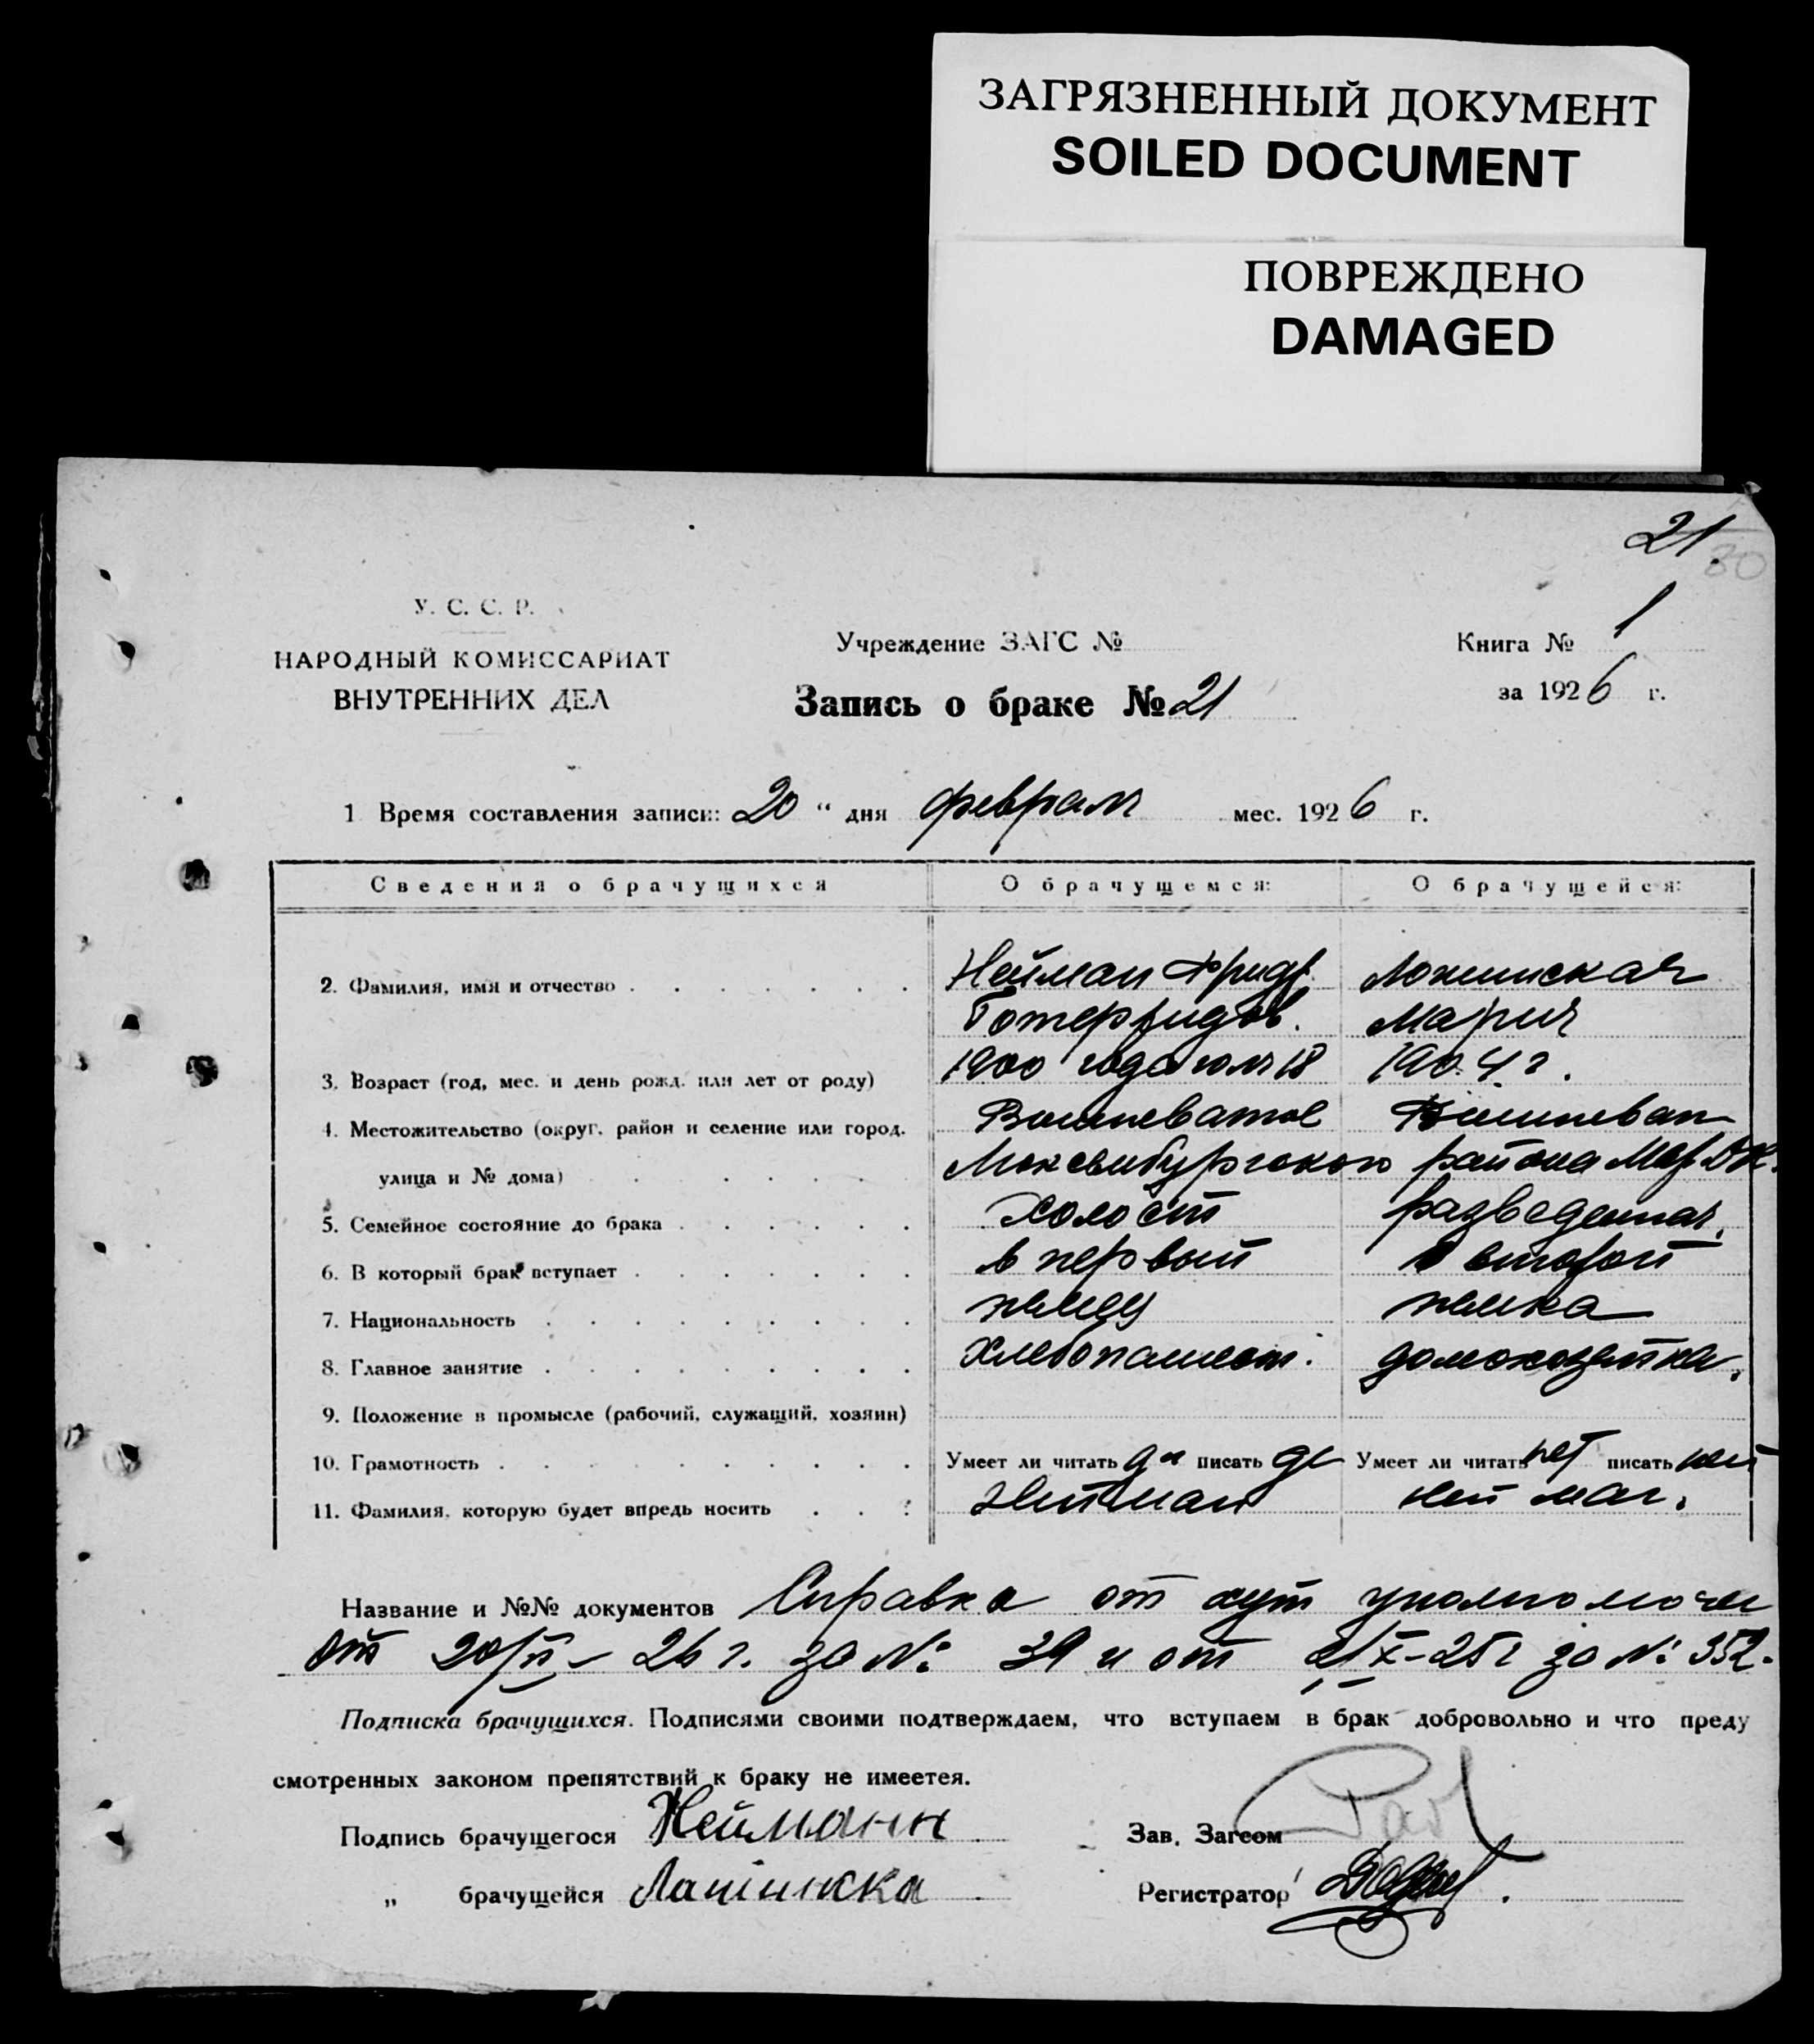 ЗАГРЯЗНЕННЫЙ ДОКУМЕНТ
SOILED DOCUMENT
ПОВРЕЖДЕНО
DAMAGED
21.
30
У. С. С. Р.
НАРОДНЫЙ КОМИССАРИАТ
ВНУТРЕННИХ ДЕЛ
Учреждение ЗАГС №
Запись о браке № 21
Книга № 1
за 1926 г.
1 Время составления записи: 20 " дня февраля мес. 1926 г.
Сведения о брачущихся О брачущемся: О брачущейся:
2. Фамилия, имя и отчество Нейман Фридр.
Готерфридов.
Мария
3. Возраст (год, мес. и день рожд. или лет от роду) 1900 года июля 18 1904 г.
4. Местожительство (округ, район и селение или город, Вишневатое Вишневат
улица и № дома) района Мар. Ок.
5. Семейное состояние до брака холост разведенная,
6. В который брак вступает в первый в второй
7. Национальность немец немка
8. Главное занятие хлебопашест. домохозяйка.
9. Положение в промысле (рабочий, служащий, хозяин)
10. Грамотность Умеет ли читать да писать да Умеет ли читать нет писать нет
11. Фамилия, которую будет впредь носить Нейман Нейман.
Название и №№ документов Справка от упономочен
от 20/II – 26 г. за №: 39 и от 21/X – 25 г за №: 352.
Подписка брачущихся. Подписями своими подтверждаем, что вступаем в брак добровольно и что преду
смотренных законом препятствий к браку не имеетея.
Подпись брачущегося Нейманн
„ брачущейся
Зав. Загсом
Регистратор